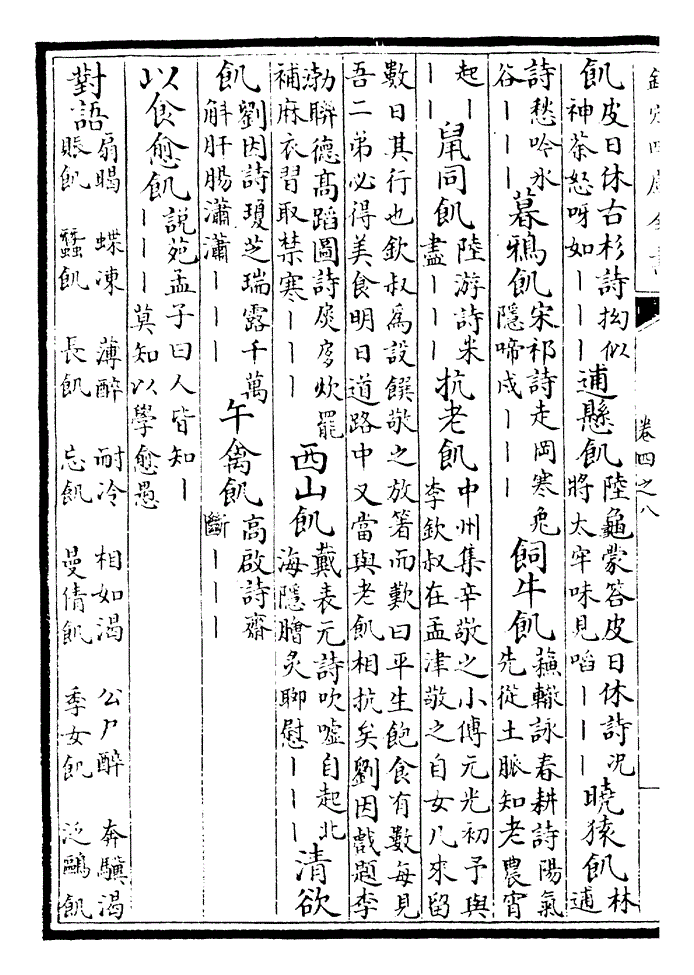 欽定四庫全書 卷四之八
飢皮日休古杉詩拗似神荼怒呀如｜｜｜逋懸飢陸龜蒙答皮日休詩况將太牢味見啗｜｜｜曉猿飢林逋
詩愁吟氷谷｜｜｜暮鴉飢宋祁詩走岡寒兔隱啼戍｜｜｜飼牛飢蘇轍詠春耕詩陽氣先從土脈知老農宵
起｜｜｜鼠同飢陸游詩米盡｜｜｜抗老飢中州集辛敬之小傳元光初予與李欽叔在孟津敬之自女几來留
數日其行也欽叔為設饌敬之放箸而歎曰平生飽食有數每見吾二弟必得美食明日道路中又當與老飢相抗矣劉因戲題李
渤聯德高蹈圖詩扊扅炊罷補麻衣習取禁寒｜｜｜西山飢戴表元詩吹噓自起北海隱膾炙聊慰｜｜｜清欲
飢劉因詩瓊芝瑞露千萬斛肝腸瀟瀟｜｜｜午禽飢高啟詩齋斷｜｜｜
以食愈飢說苑孟子曰人皆知｜｜｜｜莫知以學愈愚
對語扇暍 蝶凍 薄醉 耐冷 相如渴 公尸醉 奔驥渴
賬飢 蠶飢 長飢 忘飢 曼倩飢 季女飢 泛鷗飢